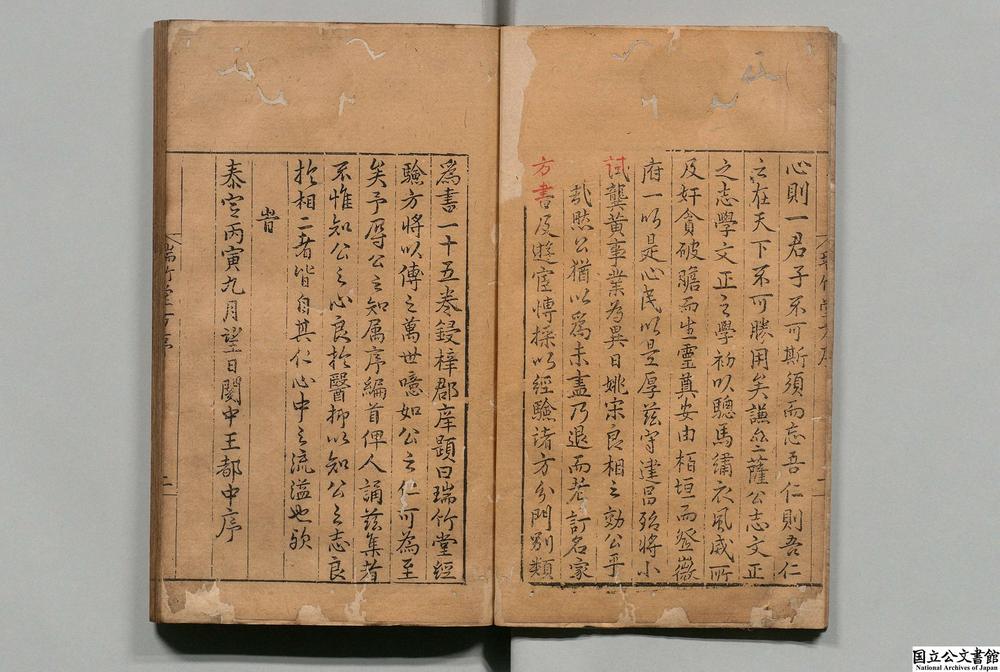 心則一君子不可斯須而忘吾仁則吾仁
之在天下不可勝用矣謙齋薩公志文正
之志學文正之學初以驄馬繡衣風威所
及奸貪破膽而生靈奠安由栢垣而登薇
府一以是心民以是厚茲守建昌殆將小
試龔黃事業為異日姚宋良相之効公乎
哉然公猶以為未盡乃退而芟訂名家
方書及遊宦博採以經驗諸方分門別類
為書一十五卷鋟梓郡庠題曰瑞竹堂經
驗方將以傳之萬世噫如公之仁可為至
矣予辱公之知属序編首俾人誦茲集者
不惟知公之心良扵醫抑以知公之志良
扵相二者皆自其仁心中之流溢也欤
旹
泰定丙寅九月望日閩中王都中序
瑞竹堂方序
二
国立公文書館
National Archives of Japan